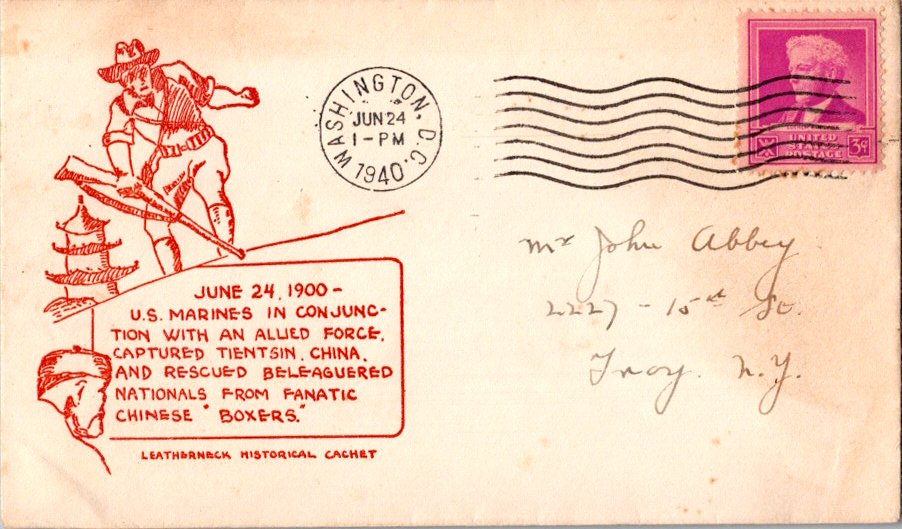 WASHINGTON, D.C.
JUN 24
1 - PM
1940
UNITED
STATES
POSTAGE
3¢
Mr John Abbey
2227 - 15th St.
Troy. N.Y.
JUNE 24, 1900 -
U.S. MARINES IN CONJUNC-
TION WITH AN ALLIED FORCE,
CAPTURED TIENTSIN, CHINA,
AND RESCUED BELEAGUERED
NATIONALS FROM FANATIC
CHINESE "BOXERS."
LEATHERNECK HISTORICAL CACHET